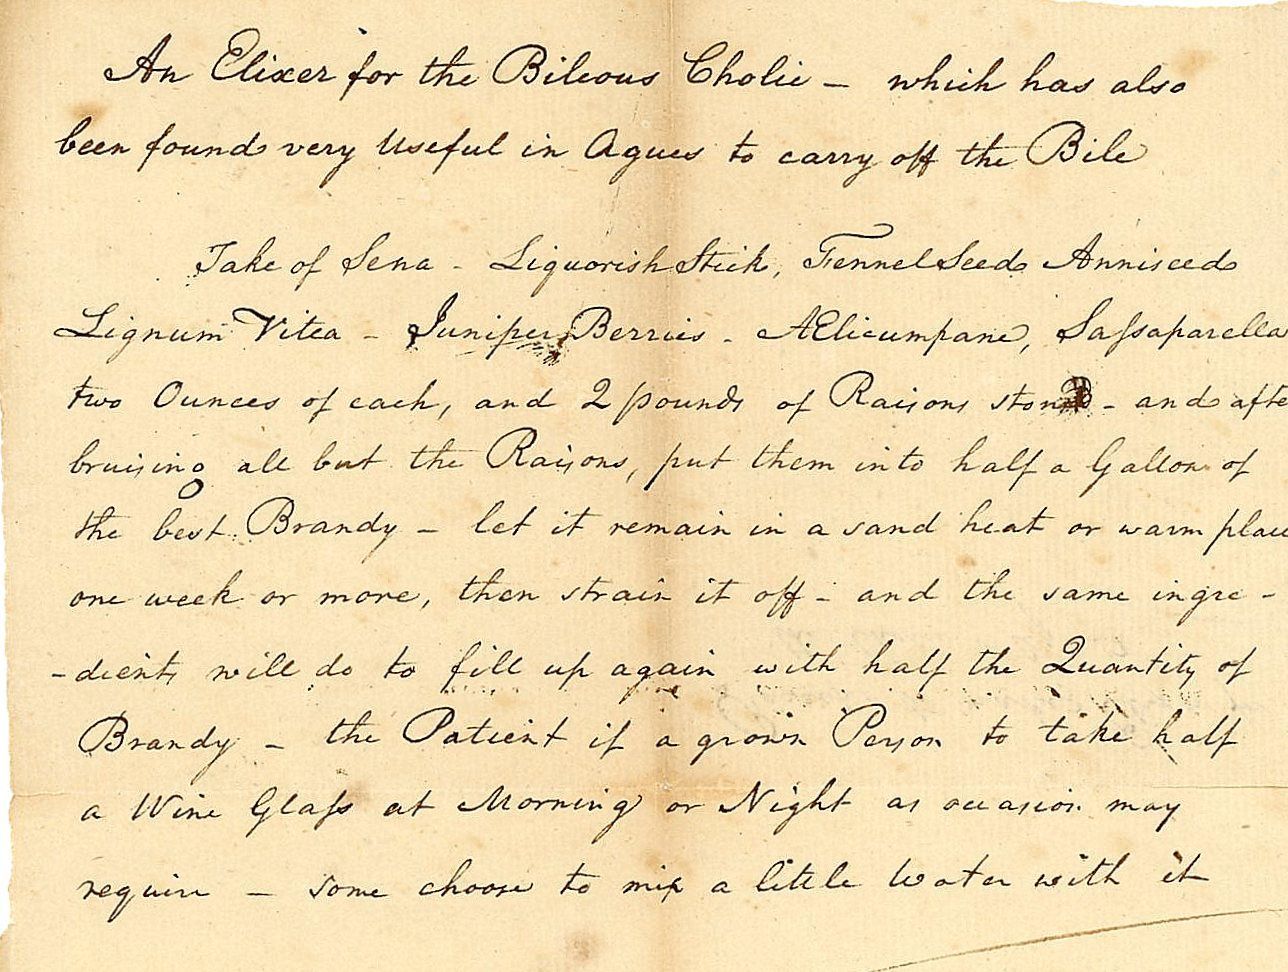 An Elixer for the Bileous Cholic – which has also
been found very Useful in Agues to carry off the Bile
Take of Sena - Liquorish Stick, Fennel Seed Anniseed
Lignum Vitea - Juniper Berries - AElicumpane, Sassaparella
two Ounces of each, and 2 pounds of Raisons stoned - and afte
bruising all but the Raisons, put them into half a Gallon of
the best Brandy – let it remain in a sand heat or warm place
one week or more, then strain it off - and the same ingre-
-dients will do to fill up again with half the Quantity of
Brandy - the Patient if a grown Person to take half
a Wine Glass at Morning or Night as occasion may
require – some choose to mix a little Water with it